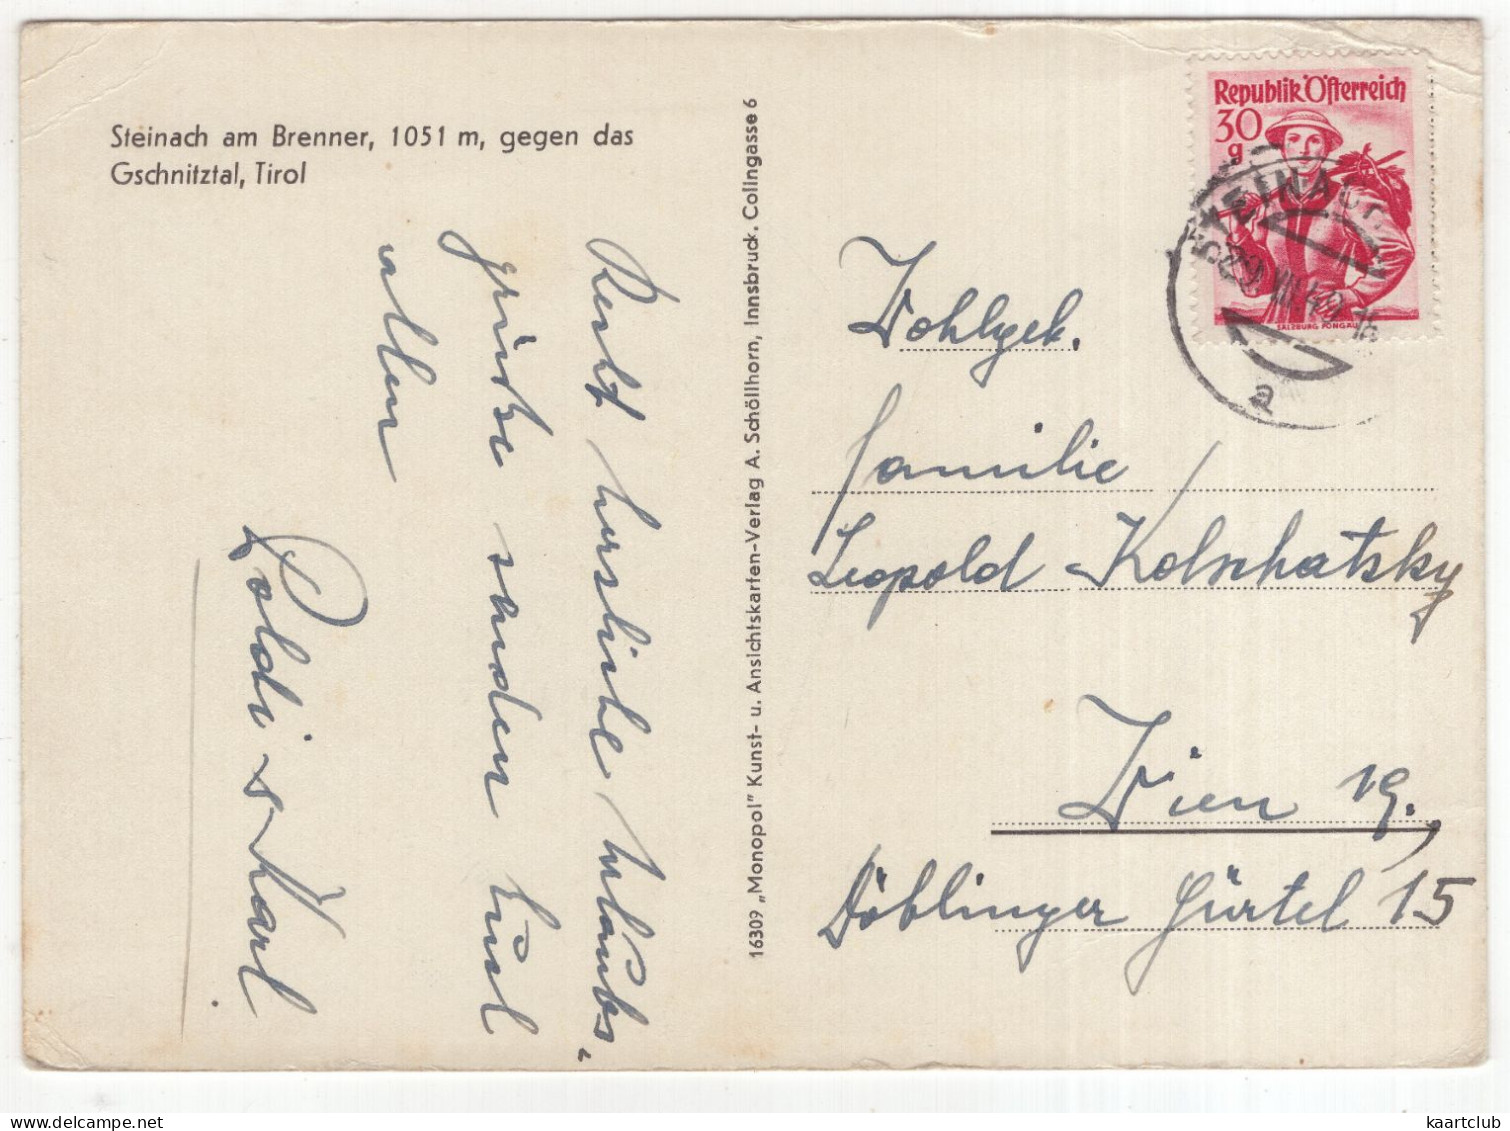 Steinach am Brenner, 1051 m, gegen das
Gschnitztal, Tirol
Recht herzliche Urlaubs-
grüße senden Euch
allen
Poldi u Karl
16309 „Monopol" Kunst- u. Ansichtskarten-Verlag A. Schöllhorn, Innsbruck. Colingasse 6
Republik Österreich
30
g
SALZBURG PONGAU
STEINACH
29. VIII. 49. 15
a
Wohlgeb.
Familie
Leopold
Wien 19.,
Döblinger Gürtel 15
kaartclub